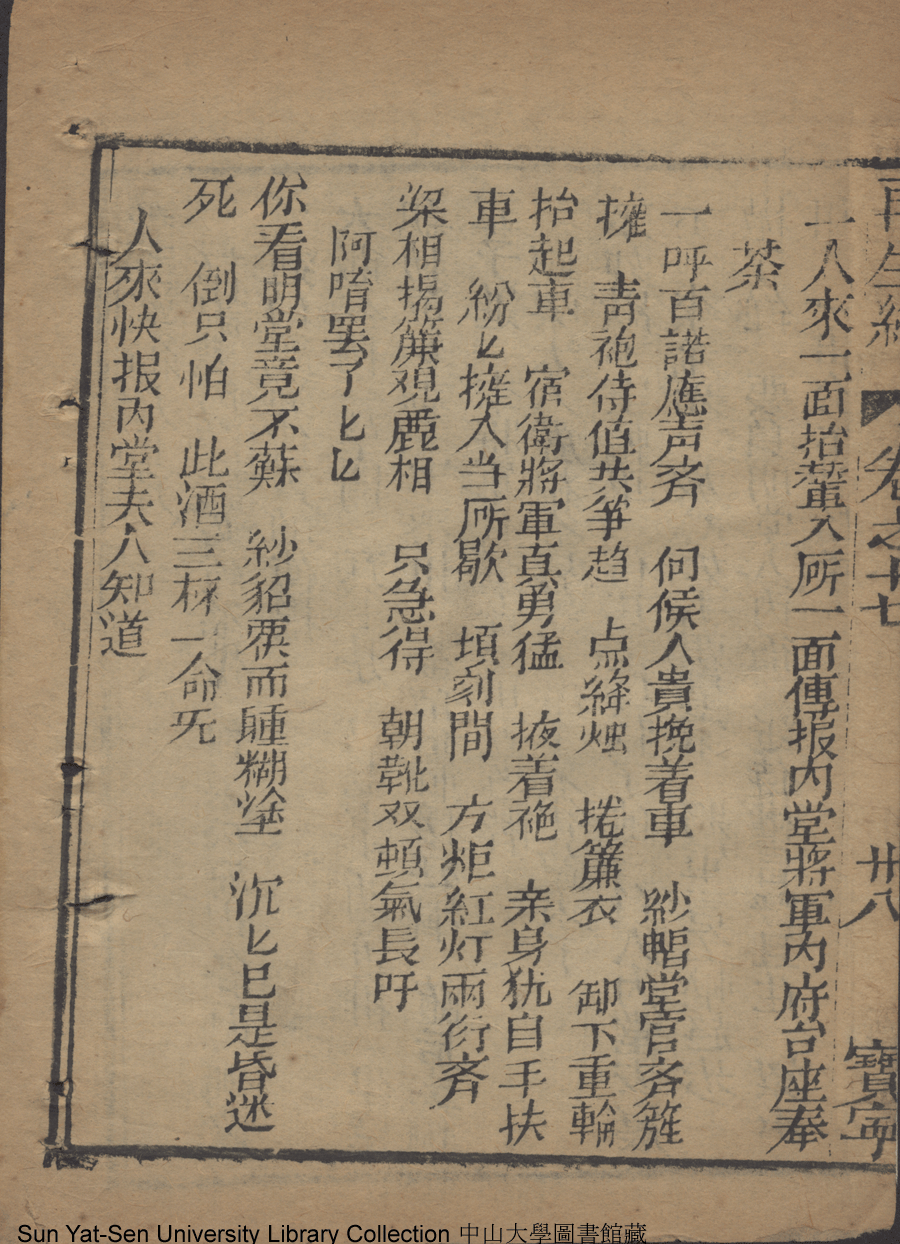 再生緣 卷之十七 卅八 寶寧
一人來一面抬輦入所一面傳报内堂將軍内府台座奉
茶
一呼百諾應声斉 伺候人貴挽着車 紗帽堂官斉簇
擁 青袍侍值共爭趋 点絳烛 捲簾衣 卸下重輪
抬起車 宿衛將軍真勇猛 掖着袍 亲身犹自手扶
車 紛匕擁入当所歇 頃刻間 方炬紅灯兩衍斉
梁相揭簾观鹿相 只急得 朝靴双頓氣長吁
阿唷罢了匕匕
你看明堂竟不蘇 紗貂而腄糊塗 沉匕巳是昏迷
死 倒只怕 此酒三杯一命死
人來快报内堂夫人知道
Sun Yat-Sen University Library Collection 中山大學圖書館藏